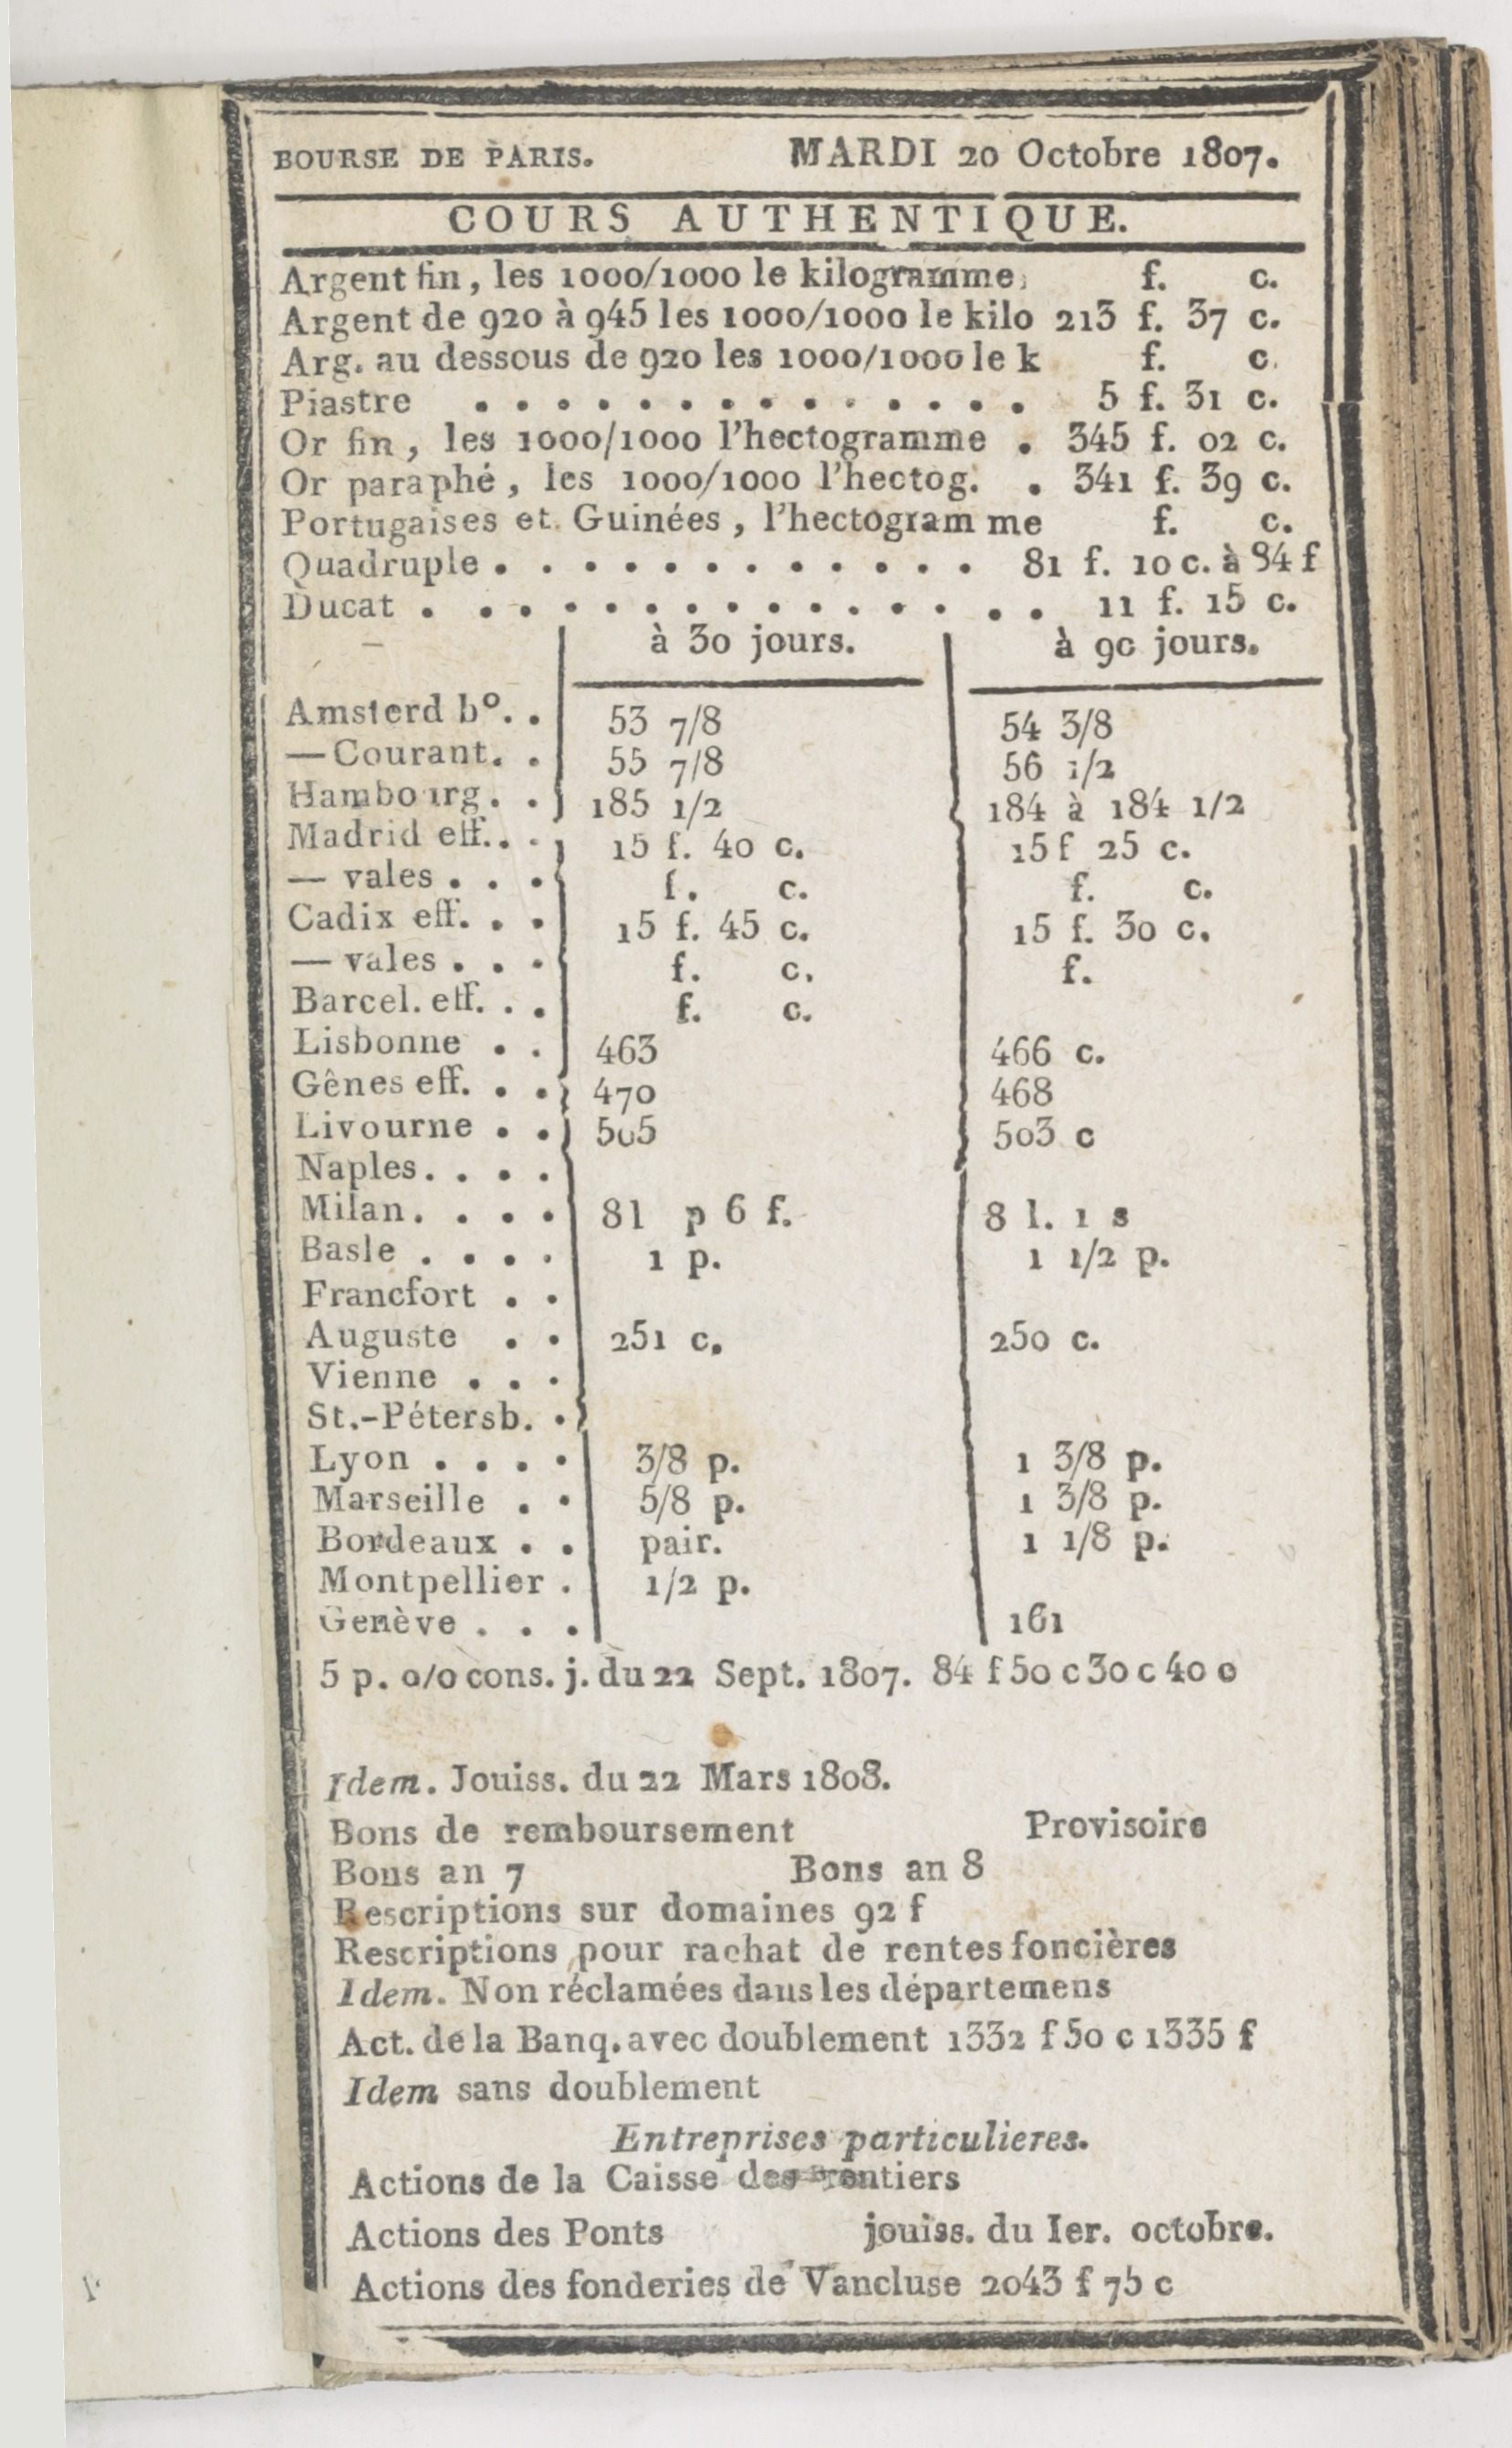 BOURSE DE PARIS. MARDI 20 Octobre 1807.
COURS AUTHENTIQUE.
Argent fin, les 1000/1000 le kilogramme, f. c.
Argent de 920 à 945 les 1000/1000 le kilo 213 f. 37 c.
Arg. au dessous de 920 les 1000/1000 le k f. c.
Piastre . . . . . . . . . . . . . . 5 f. 31 c.
Or fin, les 1000/1000 l'hectogramme . 345 f. 02 c.
Or paraphé, les 1000/1000 l'hectog. . 341 f. 39 c.
Portugaises et. Guinées, l'hectogram me f. c.
Quadruple . . . . . . . . . . . . . 81 f. 10 c. à 84 f
Ducat . . . . . . . . . . . . . . . 11 f. 15 c.
à 30 jours. à 90 jours.
Amsterd b°. . 53 7/8 54 3/8
— Courant. . 55 7/8 56 1/2
Hambourg. . 185 1/2 184 à 184 1/2
Madrid eff.. . 15 f. 40 c. 15 f 25 c.
— vales . . . f. c. f. c.
Cadix eff. . . 15 f. 45 c. 15 f. 30 c.
— vales . . . f. c. f.
Barcel. eff. . . f. c.
Lisbonne . . 463 466 c.
Gênes eff. . . 470 468
Livourne . . 505 503 c
Naples. . . .
Milan. . . . 8 l p 6 f. 8 l. 1 s
Basle . . . . 1 p. 1 1/2 p.
Francfort . .
Auguste . . 251 c. 250 c.
Vienne . . .
St.-Pétersb. .
Lyon . . . . 3/8 p. 1 3/8 p.
Marseille . . 5/8 p. 1 3/8 p.
Bordeaux . . pair. 1 1/8 p.
Montpellier . 1/2 p.
Genève . . . 161
5 p. 0/0 cons. j. du 22 Sept. 1807. 84 f 50 c 30 c 40 c
Idem. Jouiss. du 22 Mars 1808.
Bons de remboursement Provisoire
Bons an 7 Bons an 8
Rescriptions sur domaines 92 f
Rescriptions pour rachat de rentes foncières
Idem. Non réclamées dans les départemens
Act. de la Banq. avec doublement 1332 f 50 c 1335 f
Idem sans doublement
Entreprises particulieres.
Actions de la Caisse des rentiers
Actions des Ponts jouiss. du Ier. octobre.
Actions des fonderies de Vancluse 2043 f 75 c